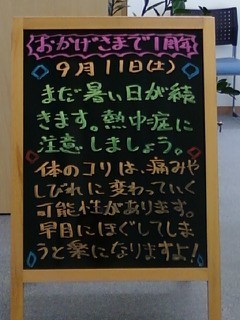 おかげさまで1周年
9月11日(土)
まだ暑い日が続
きます。熱中症に
注意しましょう。
体のコリは、痛みや
しびれに変わっていく
可能性があります。
早目にほぐしてしま
うと楽になりますよ!